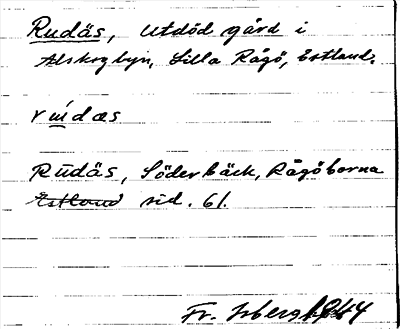 Rudäs, utdöd gård i
Alskogbyn, Lilla Rågö, Estland.
rudæs
Rudäs, Söderbäck, Rågöborna
Estland sid. 61.
Fr. 1944